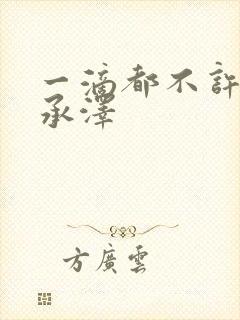 一滴都不許
承澤
方廣雲